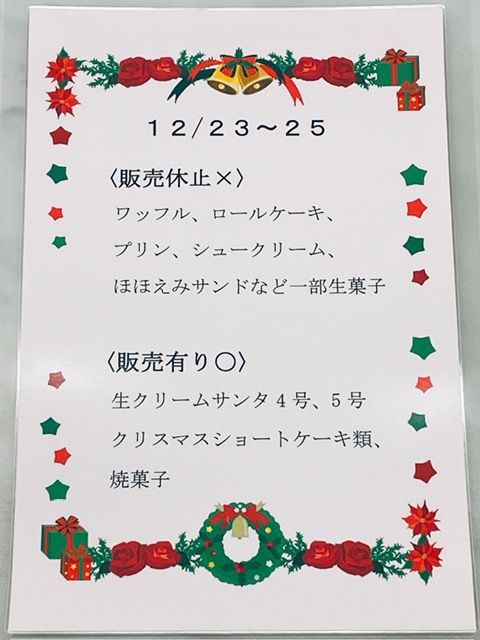 12/23～25
〈販売休止×〉
ワッフル、ロールケーキ、
プリン、シュークリーム、
ほほえみサンドなど一部生菓子
〈販売有り〇〉
生クリームサンタ４号、５号
クリスマスショートケーキ類、
焼菓子